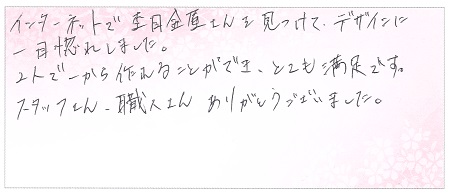 インターネットで杢目金屋さんを見つけて、デザインに
一目惚れしました。
2人で一から作れることができ、とても満足です。
スタッフさん、職人さん ありがとうございました。